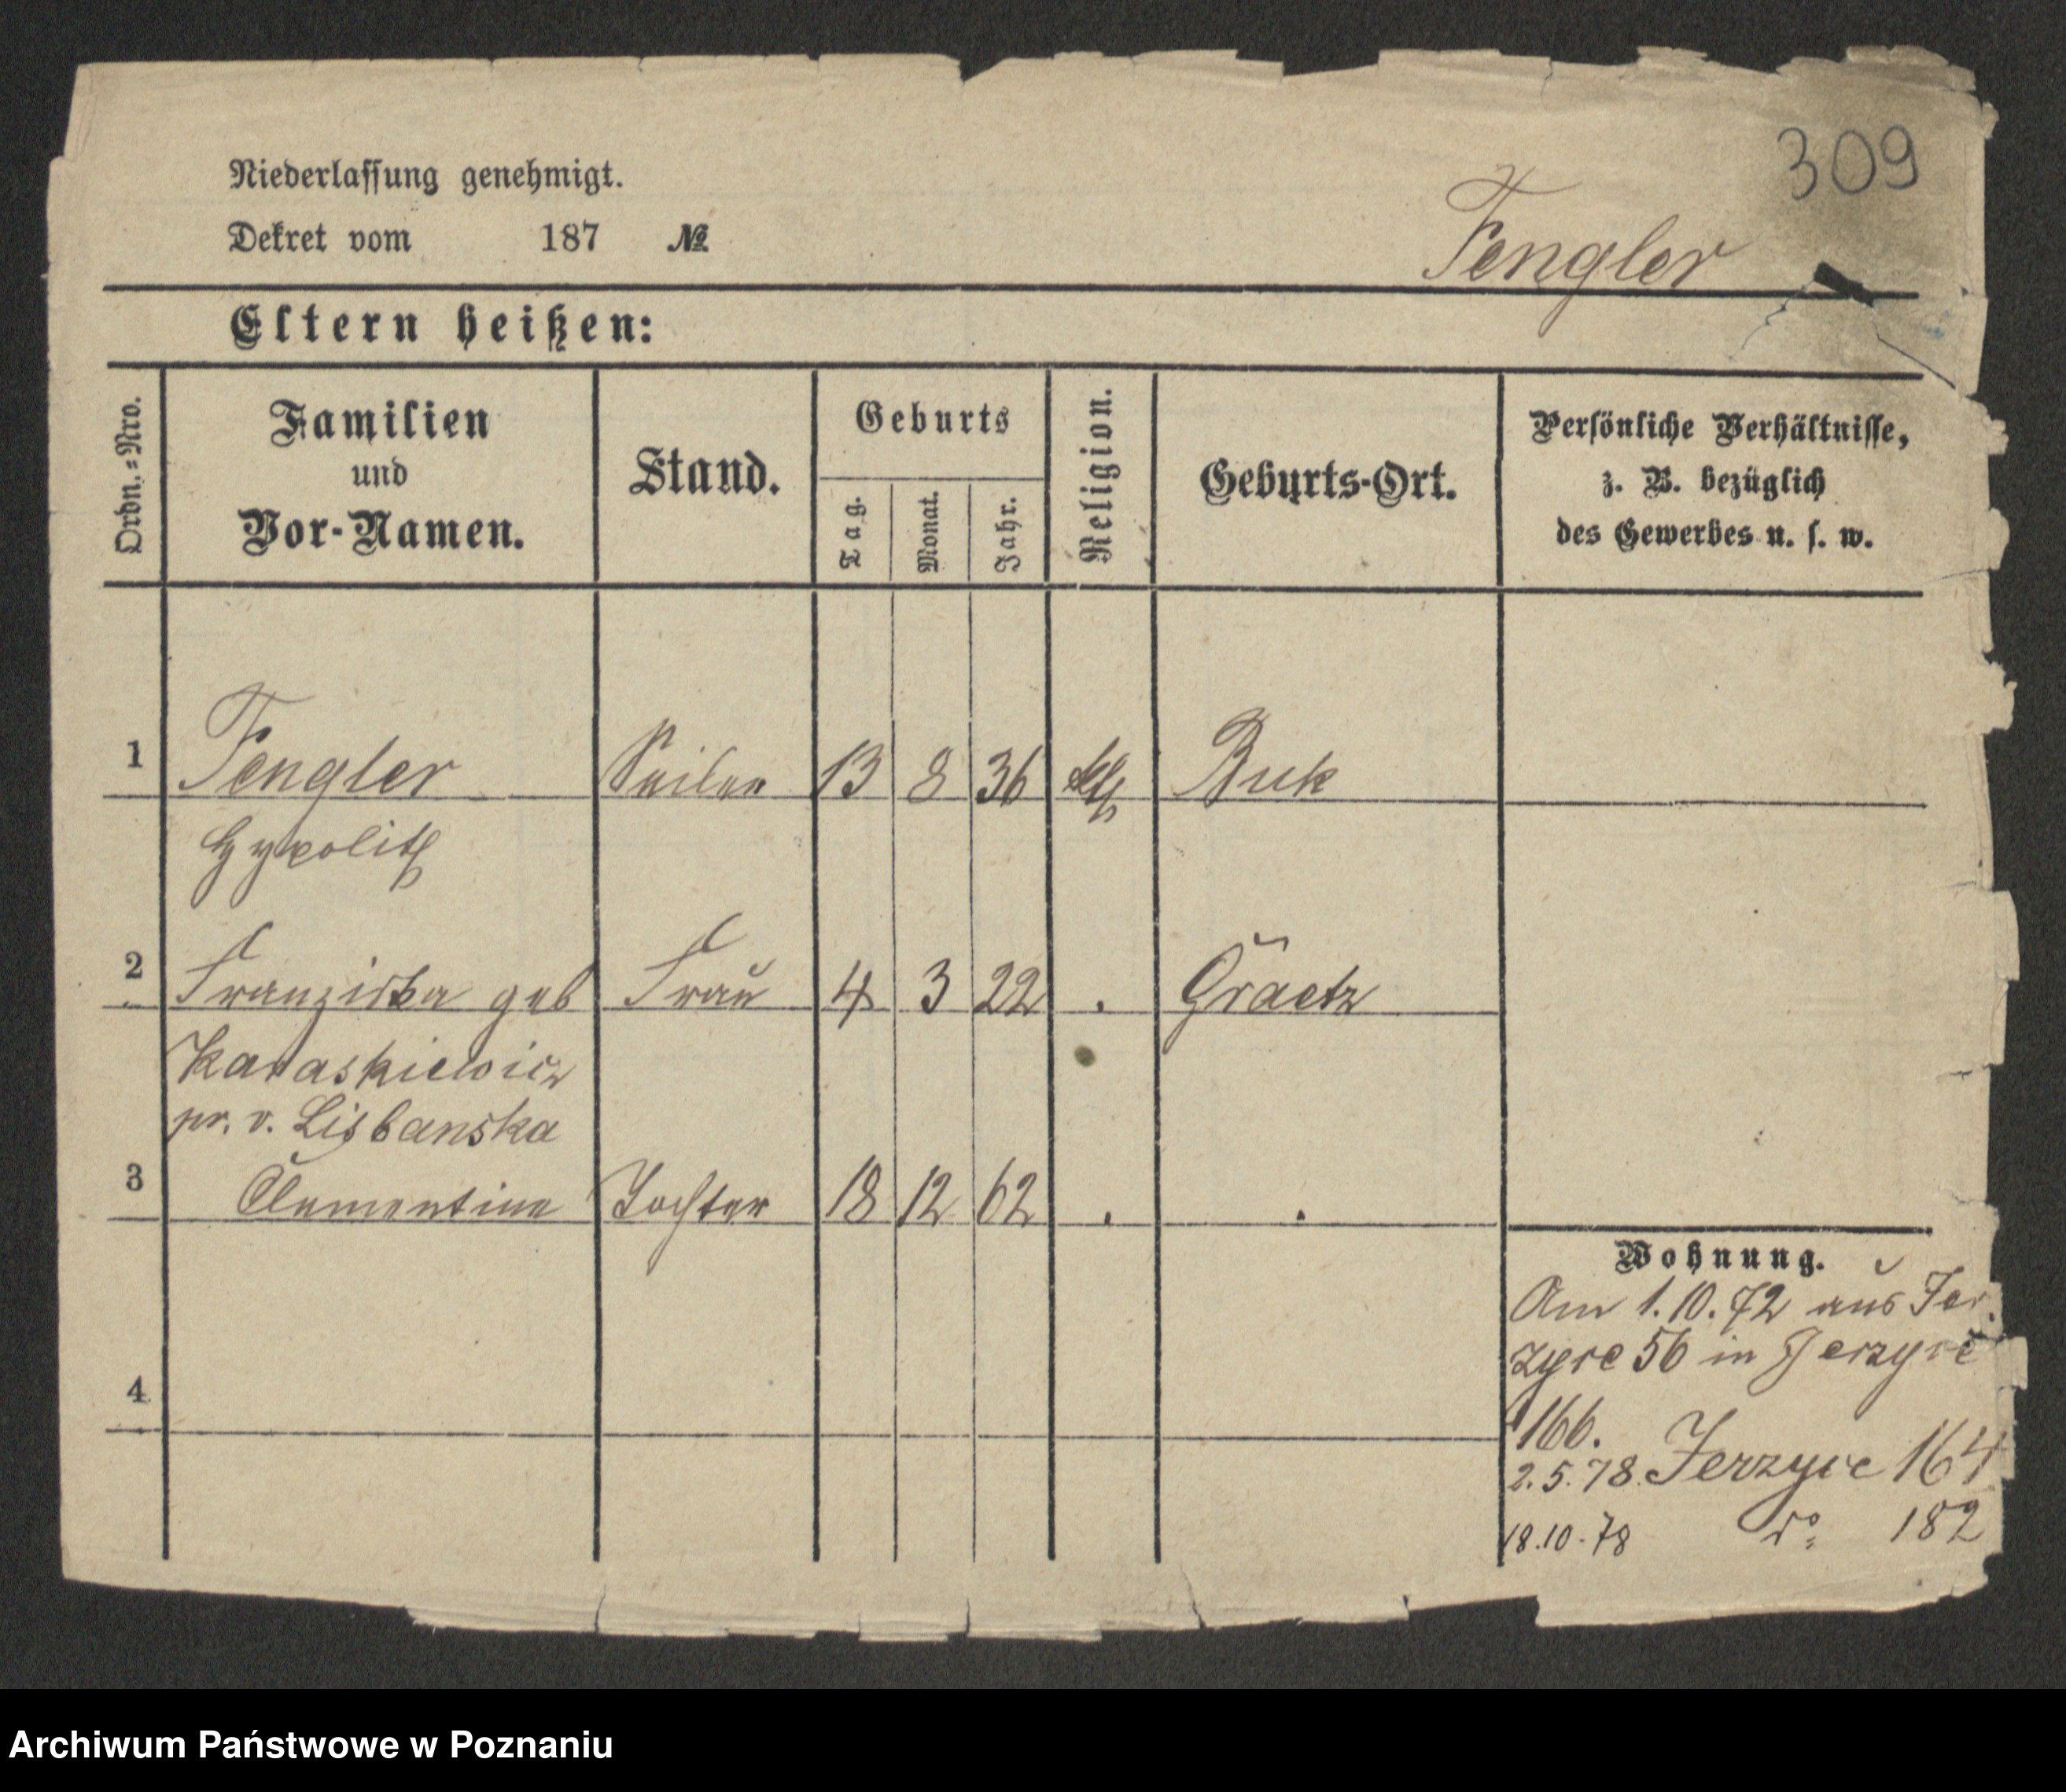 309
Niederlassung genehmigt.
Dekret vom 187 №
Fengler
Eltern heißen:
Ordn.-Nro.
Familien
und
Vor-Namen.
Stand.
Geburts
Tag.
Monat.
Jahr.
Religion.
Geburts-Ort.
Persönliche Verhältnisse,
z. B. bezüglich
des Gewerbes u. s. w.
1 Fengler Seiler 13 8 36 kth Buk
Hypolith
2 Franziska geb Frau 4 3 22 . Graetz
Karaskiewicz
pr. v. Lisbanska
3 Clementine Tochter 18 12 62 . .
4
Wohnung.
Am 1.10.72 aus Jer
zyce 56 in Jerzyce
166.
2.5.78. Jerzyce 164
18.10.78 do 182
Archiwum Państwowe w Poznaniu